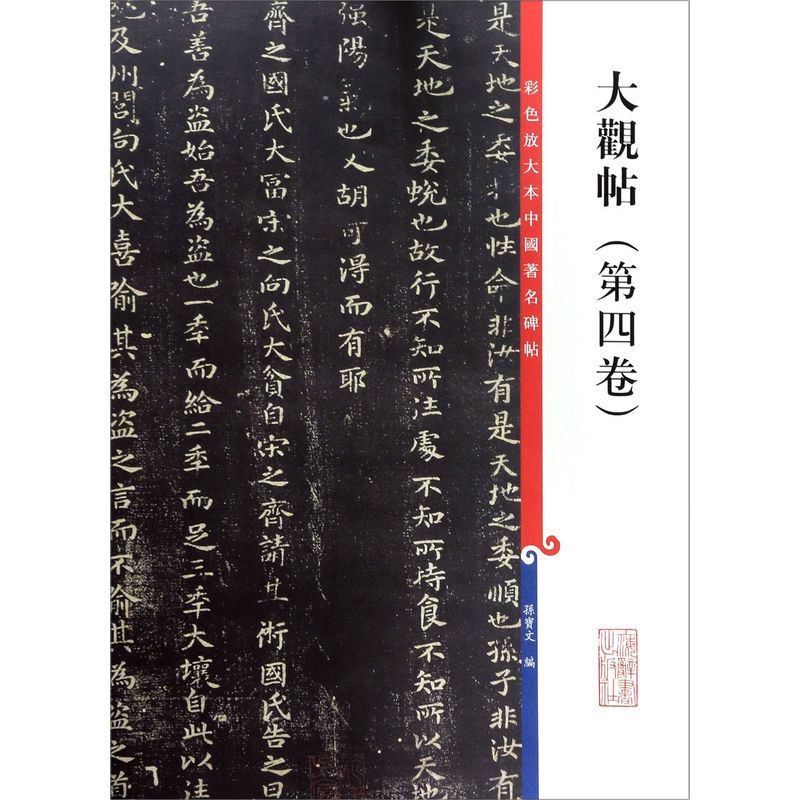 大觀帖(第四卷)
彩色放大本中國著名碑帖
孫寶文 編
上海辭書出版社
是天地之委和也性命非汝有是天地之委順也孫子非汝有
是天地之委蛻也故行不知所往處不知所持食不知所以天地
強陽氣也又胡可得而有耶
齊之國氏大富宋之向氏大貧自宋之齊請其術國氏告之曰
吾善為盜始吾為盜也一年而給二年而足三年大壤自此以往
施及州閭向氏大喜喻其為盜之言而不喻其為盜之道